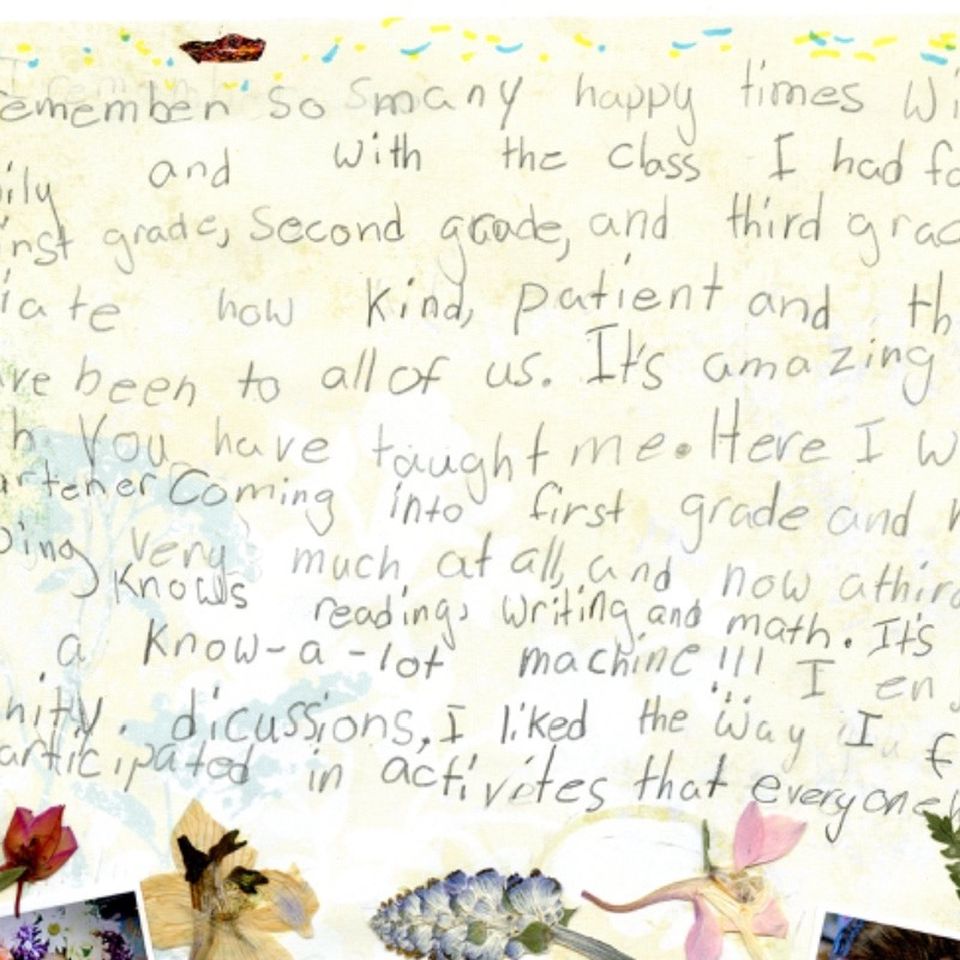 emember so many happy times wi
ily and with the class I had fo
inst grade, second grade, and third grad
iate how kind, patient and th
ve been to all of us. It's amazing
h you have taught me. Here I w
artener coming into first grade and k
oing very much, at all, and now a third
knows reading, writing and math. It's
a know-a-lot machine!!! I en
nity. dicussions, I liked the way I f
articipated in activites that everyone